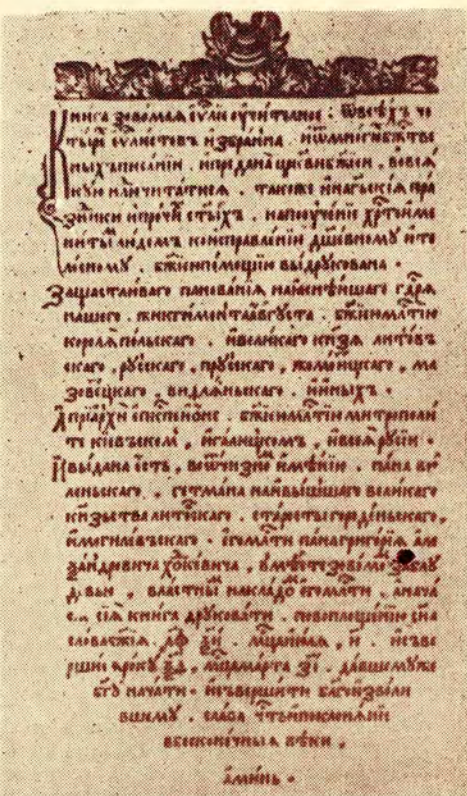 Книга зовомаꙗ єѵⷢ҇лїє ѹчителноє . ѿ всѣхъ че
тырⷯ є҆ѵⷢ҇листовъ и҆збрана . и҆ ѿ мнѡгиⷯ бж҃тве
ныⷯ писанїи . и҆ предана цр҃кви бж҃їєи . во всѧ
кую нⷣлю читатисѧ . такоже и҆ на гьскїѧ пра
зⷣники и҆ прочїⷯ ст҃ыхъ . на поѹченїє хрⷭ҇тоиме
нитыⷨ людемъ ко исправленїю дш҃евному и҆ те
лесному . бж҃їєю помощїю выдрукована .
За щастливаго панованїѧ наꙗснѣишаго гдⷭ҇рѧ
нашего . жикгимонта августа . бж҃їєю млⷭ҇тїю
королѧ польскаго . и҆ великаго кнѧзѧ литовъ
скаго , руского , прускаго , жомоиⷮцкаго , ма
зовецкаго . вифлѧнъскаго . и҆ иныхъ .
А при архїєпⷭ҇кпѣ Иѡне . бж҃їєю млⷭ҇тїю митрополи
те кїєвъскоⷨ , и҆ галицкомъ , и҆ всеѧ русїи .
Выдана єсть , во ѿчизноⷨ имѣнїю . пана ви
леньскаго . гетмана наивышшаго великаго
кнѧзьства литовⷭ҇каго . старосты городеньскаго ,
и҆ могилевъскаго . єго млⷭ҇ти пана григорїѧ але
ѯандровича хоⷣкевича , ѹ мѣсте зовомоⷨ заблу
довью , властныⷨ накладоⷨ єго млⷭ҇ти . а нача
сѧ сїѧ книга друковати . по воплощенїю сн҃а
слова бж҃їѧ . ҂афѯи . мцⷭ҇а июлѧ , и . и҆ съве
ршисѧ року ѯѳ , мцⷭ҇а марта зі . давшему же
бг҃у начати и҆ съвершити благоизволи
вшему . слава чтⷭ҇ь и҆ поклонѧнїє
в бесконечныѧ вѣки .
а҆минь .